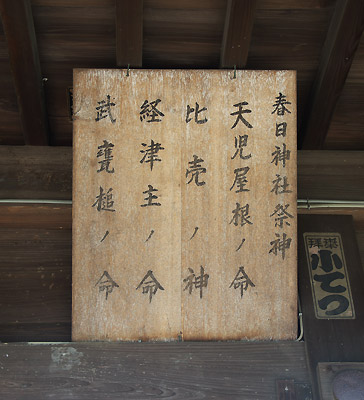 春日神社祭神
天児屋根ノ命
比売ノ神
経津主ノ命
武甕槌ノ命
小てつ